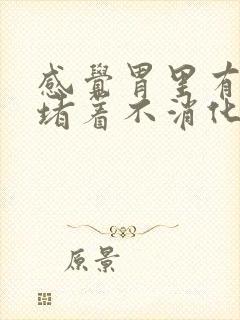 感覺胃里有
堵着不消化
原景